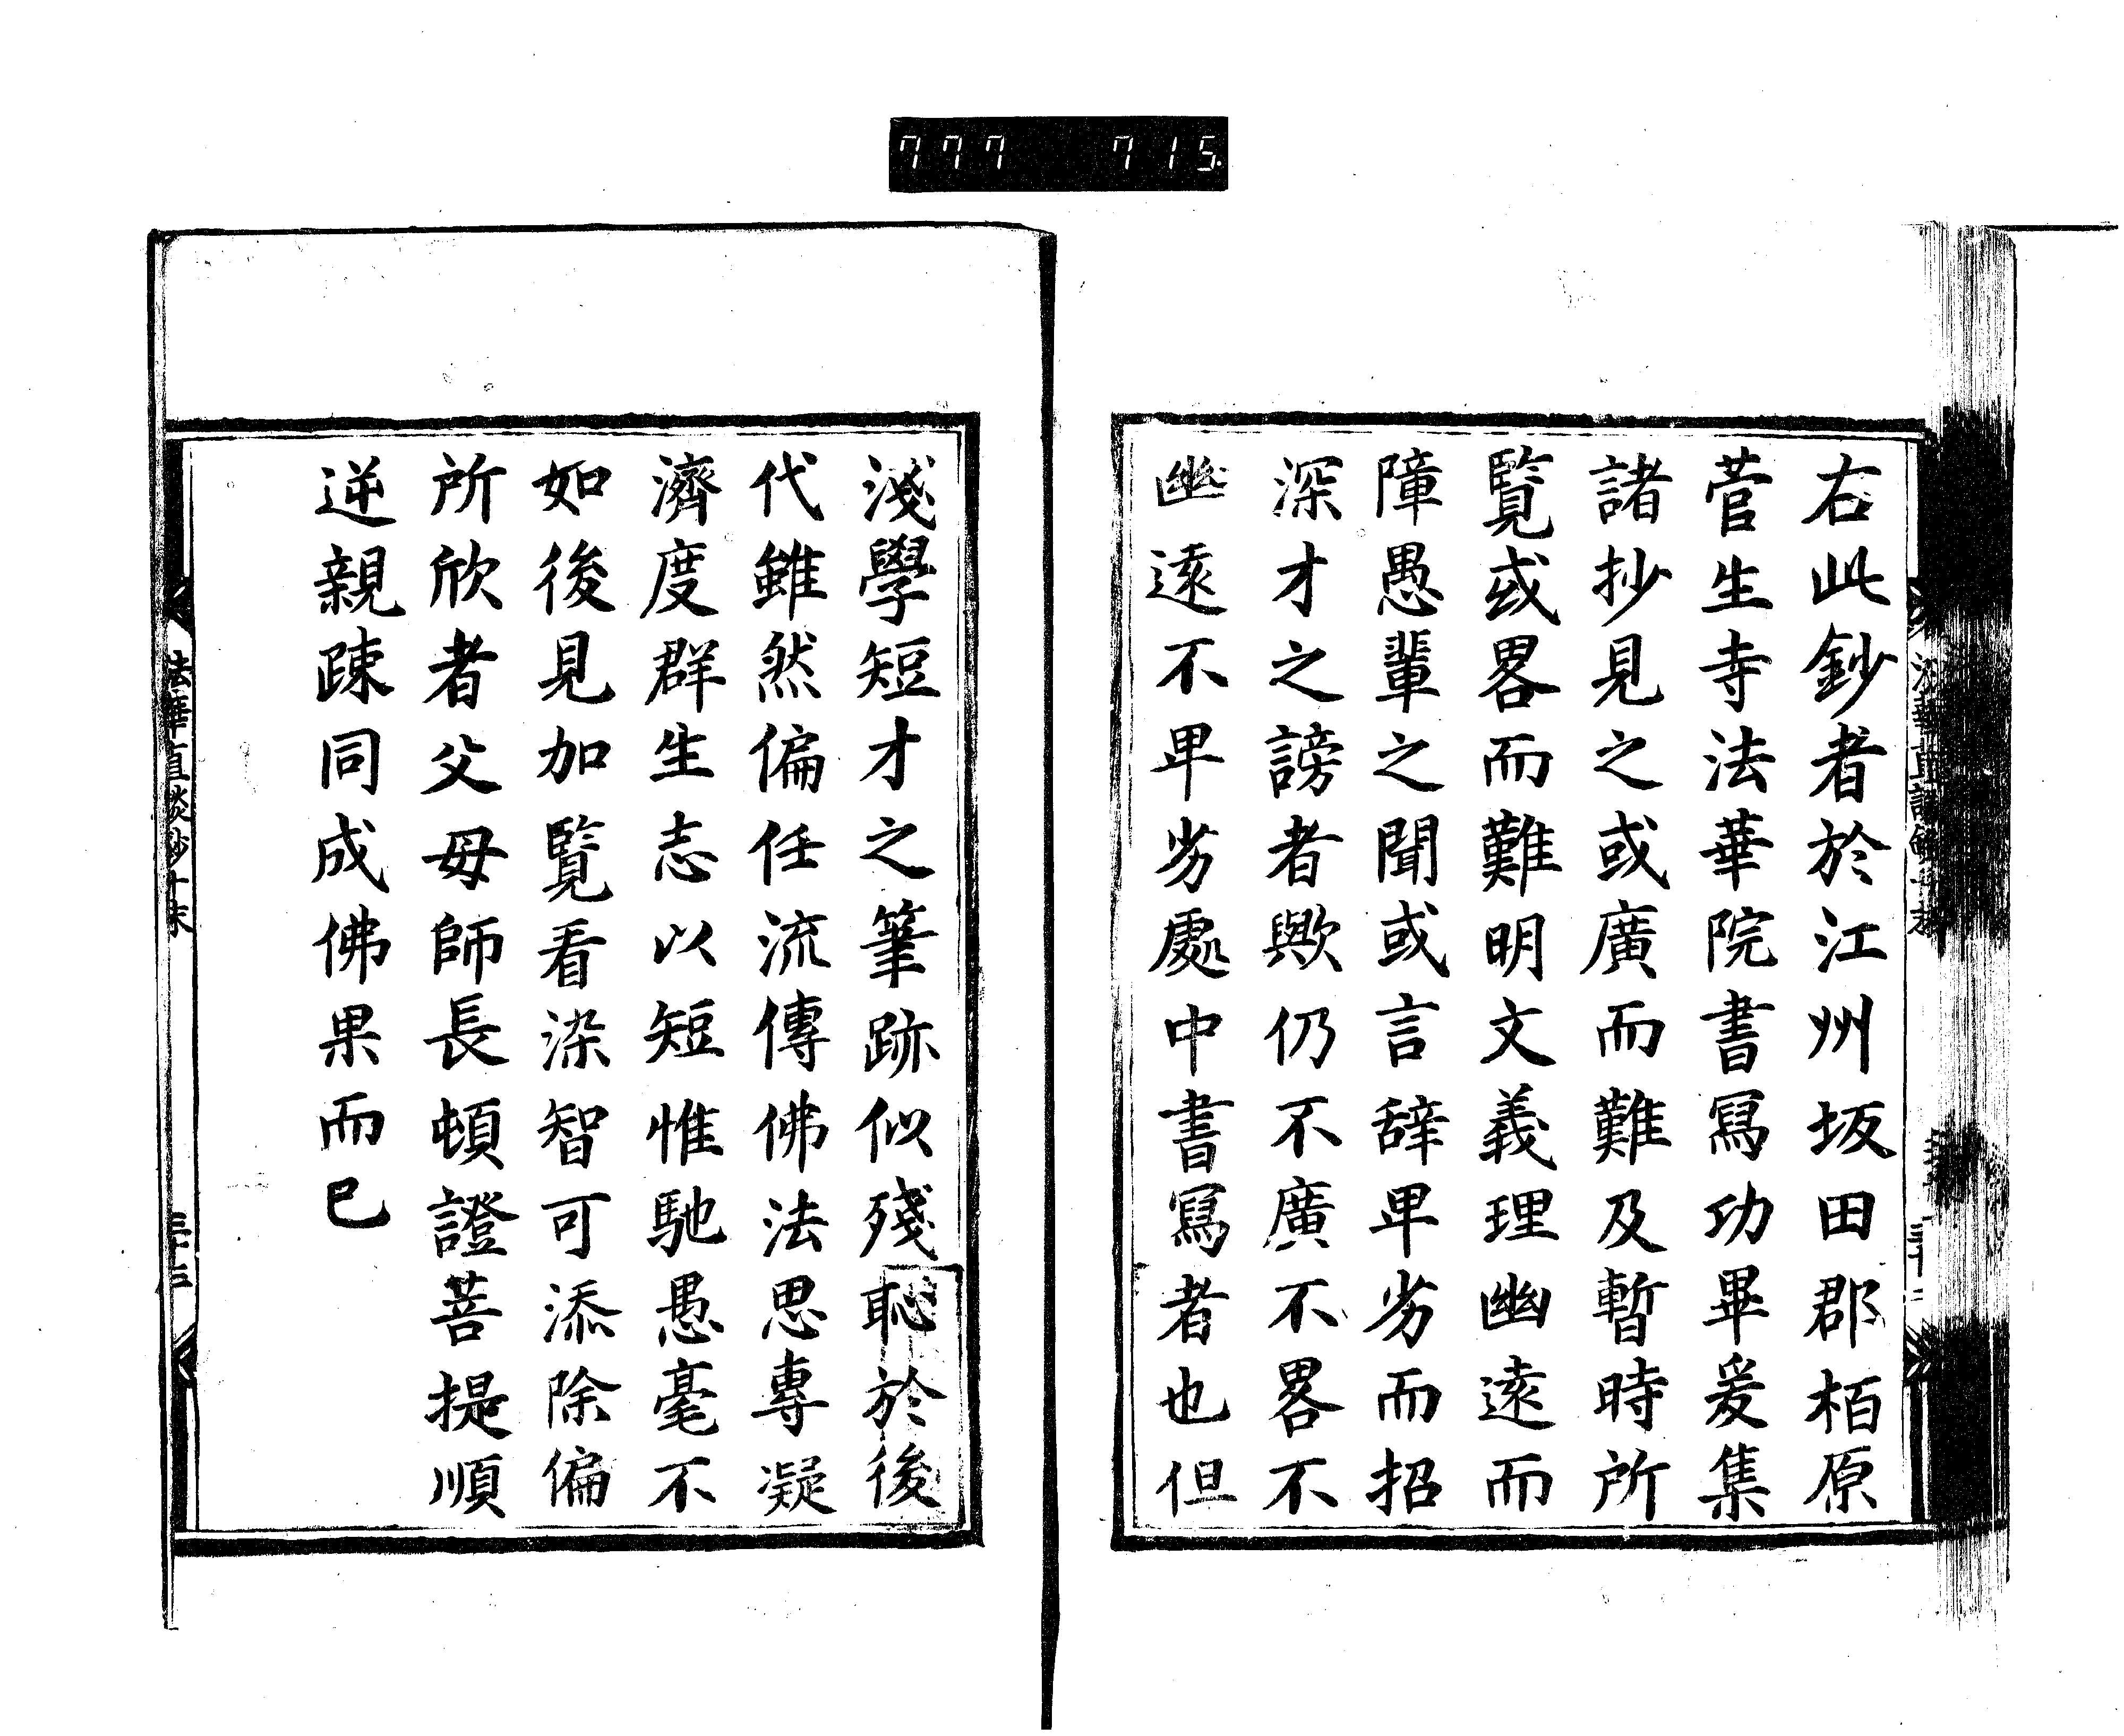 777 715.
右此鈔者於江州坂田郡栢原
菅生寺法華院書冩功畢爰集
諸抄見之或廣而難及暫時所
覧或畧而難明文義理幽遠而
障愚輩之聞或言辞卑劣而招
深才之謗者歟仍不廣不畧不
幽遠不卑劣處中書冩者也但
淺學短才之筆跡似殘恥於後
代雖然偏任流傳佛法思專凝
濟度群生志以短惟馳愚毫不
如後見加覧看染智可添除偏
所欣者父母師長頓證菩提順
逆親踈同成佛果而已
法華直談鈔十末
三十三